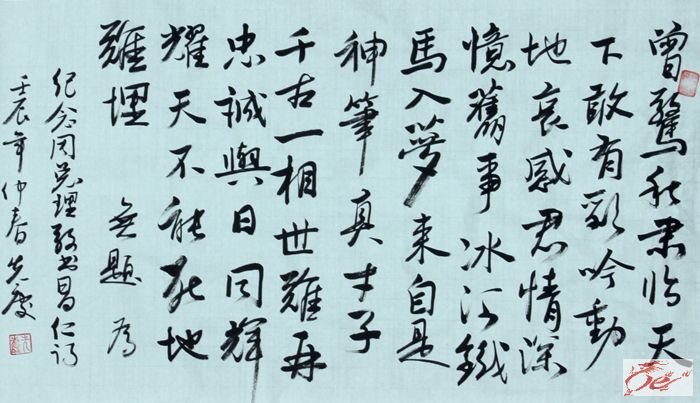 曾驚秋肃临天
下敢有歌吟動
地哀感君情深
憶舊事冰河鐵
馬入夢来自是
神筆真才子
千古一相世難再
忠誠與日同輝
耀天不能死地
難埋 無題 为
纪念周总理敬书昌仁诗
壬辰年仲春